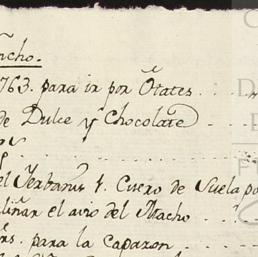 ncho.
763. para ir por Otates . . .
de Dulce y Chocolate
el Jerbanis 1. Cuero de Suela po
liñar el avio del Macho . .
rs. para la caparon . . . .